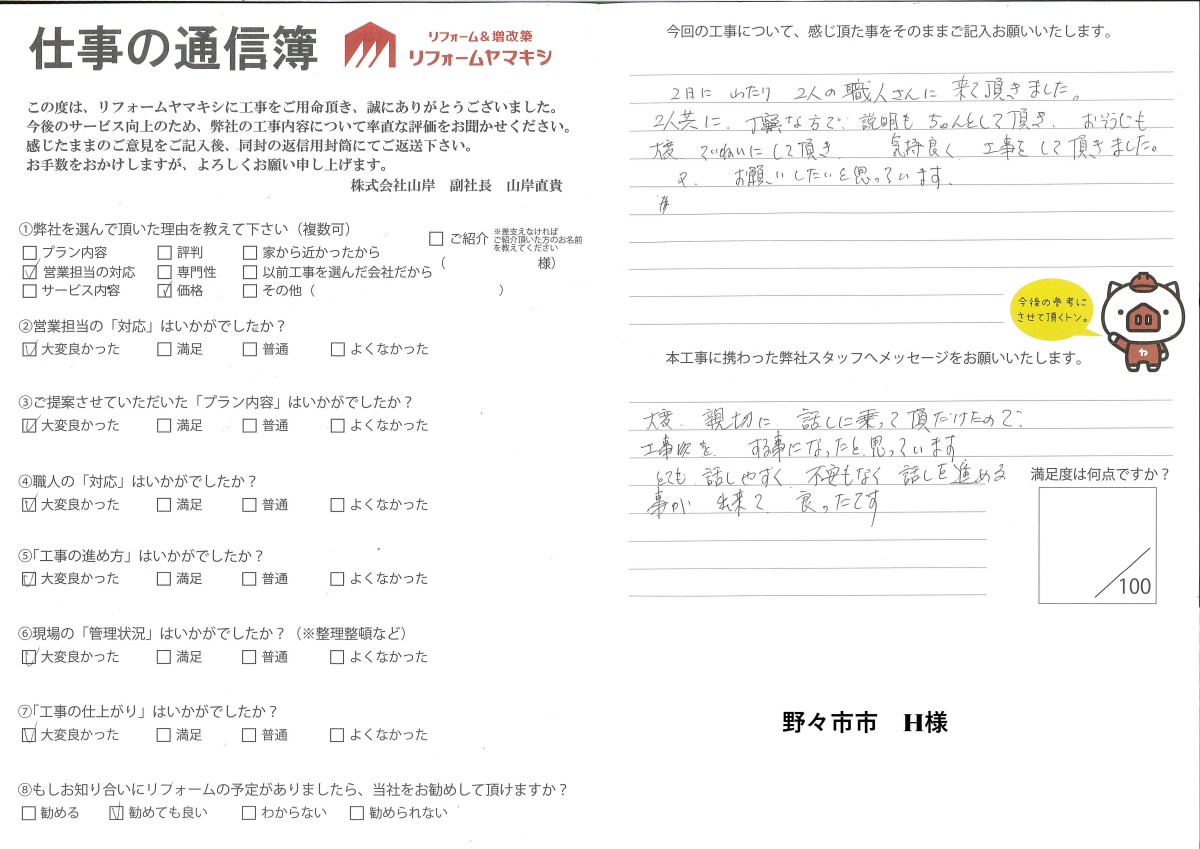 仕事の通信簿
リフォーム＆増改築
リフォームヤマキシ
この度は、リフォームヤマキシに工事をご用命頂き、誠にありがとうございました。
今後のサービス向上のため、弊社の工事内容について率直な評価をお聞かせください。
感じたままのご意見をご記入後、同封の返信用封筒にてご返送下さい。
お手数をおかけしますが、よろしくお願い申し上げます。
株式会社山岸　副社長　山岸直貴
①弊社を選んで頂いた理由を教えて下さい（複数可）
□プラン内容　□評判　□家から近かったから
☑営業担当の対応　□専門性　□以前工事を選んだ会社だから
□サービス内容　☑価格　□その他（　　　）
□ご紹介 ※差支えなければ
ご紹介頂いた方のお名前
を教えてください
（　　　様）
②営業担当の「対応」はいかがでしたか？
☑大変良かった　□満足　□普通　□よくなかった
③ご提案させていただいた「プラン内容」はいかがでしたか？
☑大変良かった　□満足　□普通　□よくなかった
④職人の「対応」はいかがでしたか？
☑大変良かった　□満足　□普通　□よくなかった
⑤「工事の進め方」はいかがでしたか？
☑大変良かった　□満足　□普通　□よくなかった
⑥現場の「管理状況」はいかがでしたか？（※整理整頓など）
☑大変良かった　□満足　□普通　□よくなかった
⑦「工事の仕上がり」はいかがでしたか？
☑大変良かった　□満足　□普通　□よくなかった
⑧もしお知り合いにリフォームの予定がありましたら、当社をお勧めして頂けますか？
□勧める　☑勧めても良い　□わからない　□勧められない
今回の工事について、感じ頂た事をそのままご記入お願いいたします。
2日に わたり 2人の職人さんに 来て頂きました。
2人共に、丁寧な方で、説明も ちゃんとして頂き、おそうじも
大変 ていねいにして頂き 気持良く 工事をして頂きました。
又、お願いしたいと思っています。
今後の参考に
させて頂くトン。
ヤ
本工事に携わった弊社スタッフへメッセージをお願いいたします。
大変、親切に 話しに乗って頂だけたので、
工事を する事になったと思っています
とても 話しやすく 不安もなく 話しを進める
事が 出来て 良ったです
満足度は何点ですか？
／100
野々市市　H様